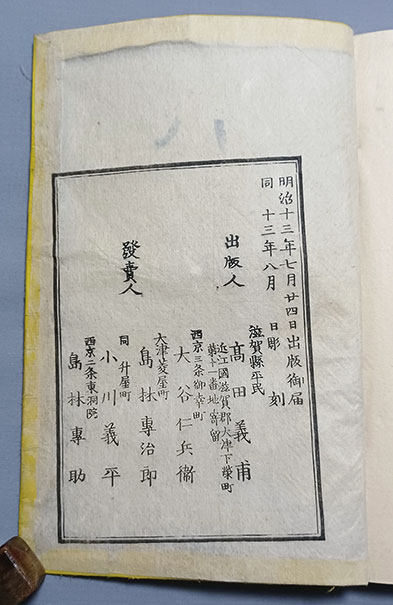 明治十三年七月廿四日出版御届
同十三年八月 日彫刻
滋賀縣平民
出版人 髙田義甫
近江國滋賀郡大津下榮町
第十一番地寄留
西京三条御幸町
大谷仁兵衞
大津菱屋町
發賣人 島林專治郎
同 升屋町
小川義平
西京二条東洞院
島林專助